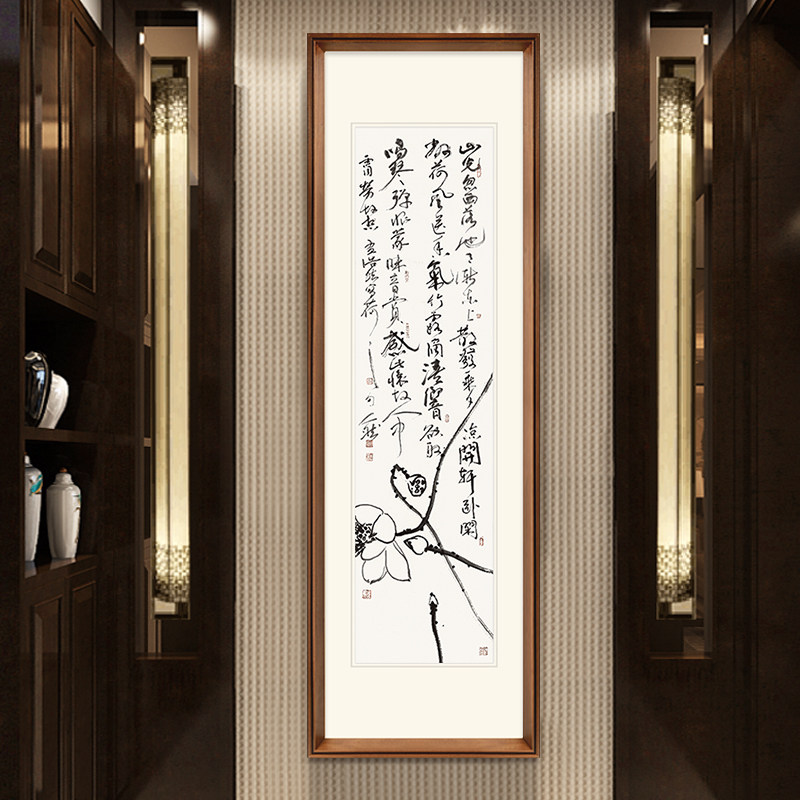 山光忽西落池月漸东上散發乘夕凉開軒卧閑
敞荷風送香氣竹露滴清響欲取
鳴琴彈恨音賞感此懷故人中
宵勞想孟浩然荷